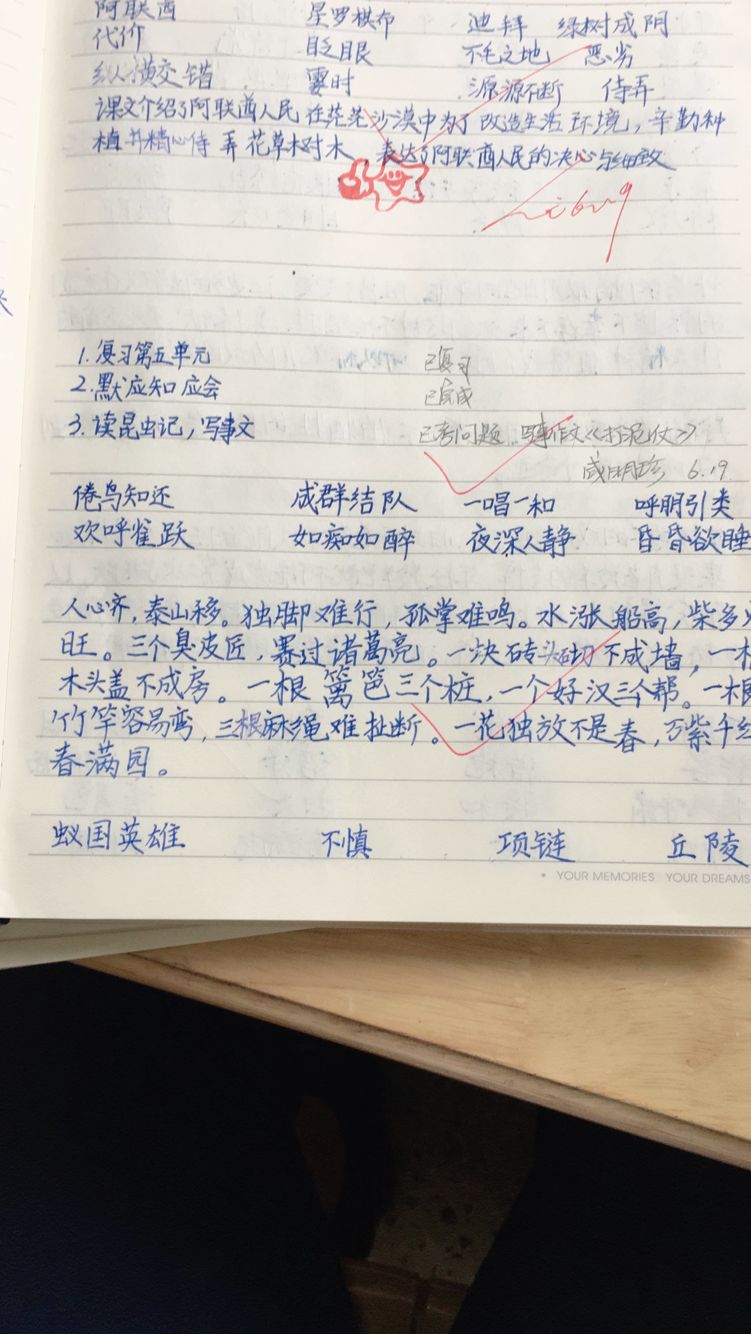 阿联酋 星罗棋布 迪拜 绿树成阴
代价 眨眼 不毛之地 恶劣
纵横交错 霎时 源源不断 侍弄
课文介绍了阿联酋人民在茫茫沙漠中为了改造生活环境，辛勤种
植并精心侍弄花草树木，表达了阿联酋人民的决心与细致
1.复习第五单元 已复习
2.默应知应会 已完成
3.读昆虫记，写事文 已考问题 写事作文《打泥仗》
6.19.
倦鸟知还 成群结队 一唱一和 呼朋引类
欢呼雀跃 如痴如醉 夜深人静 昏昏欲睡
人心齐，泰山移。独脚难行，孤掌难鸣。水涨船高，柴多火
旺。三个臭皮匠，赛过诸葛亮。一块砖头砌不成墙，一根
木头盖不成房。一根篱笆三个桩，一个好汉三个帮。一根
竹竿容易弯，三根麻绳难扯断。一花独放不是春，万紫千红
春满园。
蚁国英雄 不慎 项链 丘陵
YOUR MEMORIES YOUR DREAMS